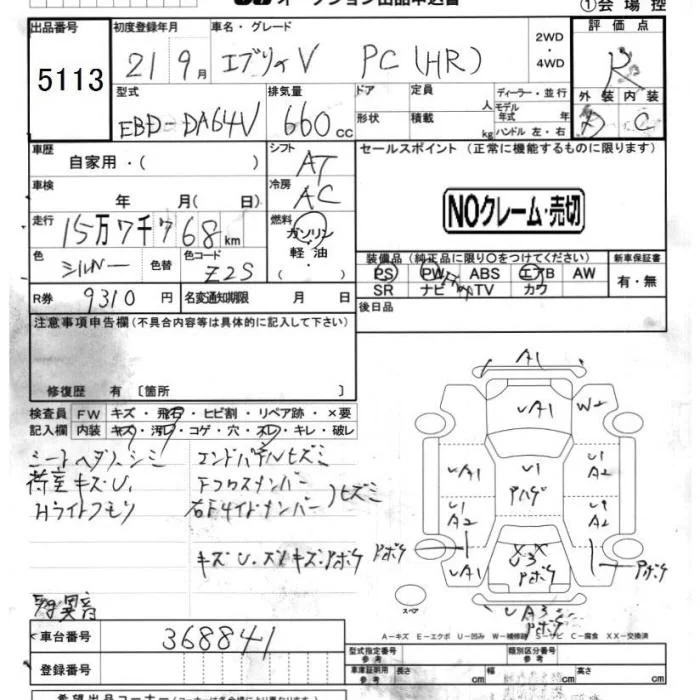 オークション出品申込書
①会場控
出品番号 初度登録年月 車名・グレード 2WD ・ 4WD 評価点
5113 21 9月 エブリィV PC(HR) R
型式 排気量 ドア 定員 人 ディーラー・並行 外装 内装
EBD-DA64V 660cc 形状 積載 kg モデル年式 年 ハンドル 左・右 D C
車歴 自家用・( ) シフト AT セールスポイント (正常に機能するものに限ります)
車検 年 月( 日) 冷房 AC
NOクレーム・売切
走行 15万7千768km 燃料 ガソリン・軽油・( )
色 シルバー 色替 色コード Z2S
装備品 (純正品に限り○をつけてください) 新車保証書
PS PW ABS エアB AW 有・無
SR ナビ TV カワ
R券 9310円 名変通知期限 月 日
後日品
注意事項申告欄(不具合内容等は具体的に記入して下さい)
修復歴 有 〔箇所 〕
検査員 FW キズ・飛石・ヒビ割・リペア跡・×要
記入欄 内装 キズ・汚レ・コゲ・穴・スレ・キレ・破レ
シートヘタリ、シミ エンドパネルヒズミ
荷室キズU、 Fクロスメンバー
Hライトクモリ 右Fサイドメンバー 〉ヒズミ
キズU、スレキズ、アホ゛ケ
A1
UA1 W2
UA1 U1 U1 A2
アハゲ
U1 A2 U1 A2
アボケ UA1 XX U3 アボケ アボケ
スペア UA3 アボケ
A－キズ E－エクボ U－凹み W－補修跡 S－サビ C－腐食 XX－交換済
車台番号 368841
登録番号
型式指定番号 参考 類別区分番号 参考
車庫証明用 参考 長さ cm 幅 cm 高さ cm
希望出品コーナー(コーナーは各会場により異なります)